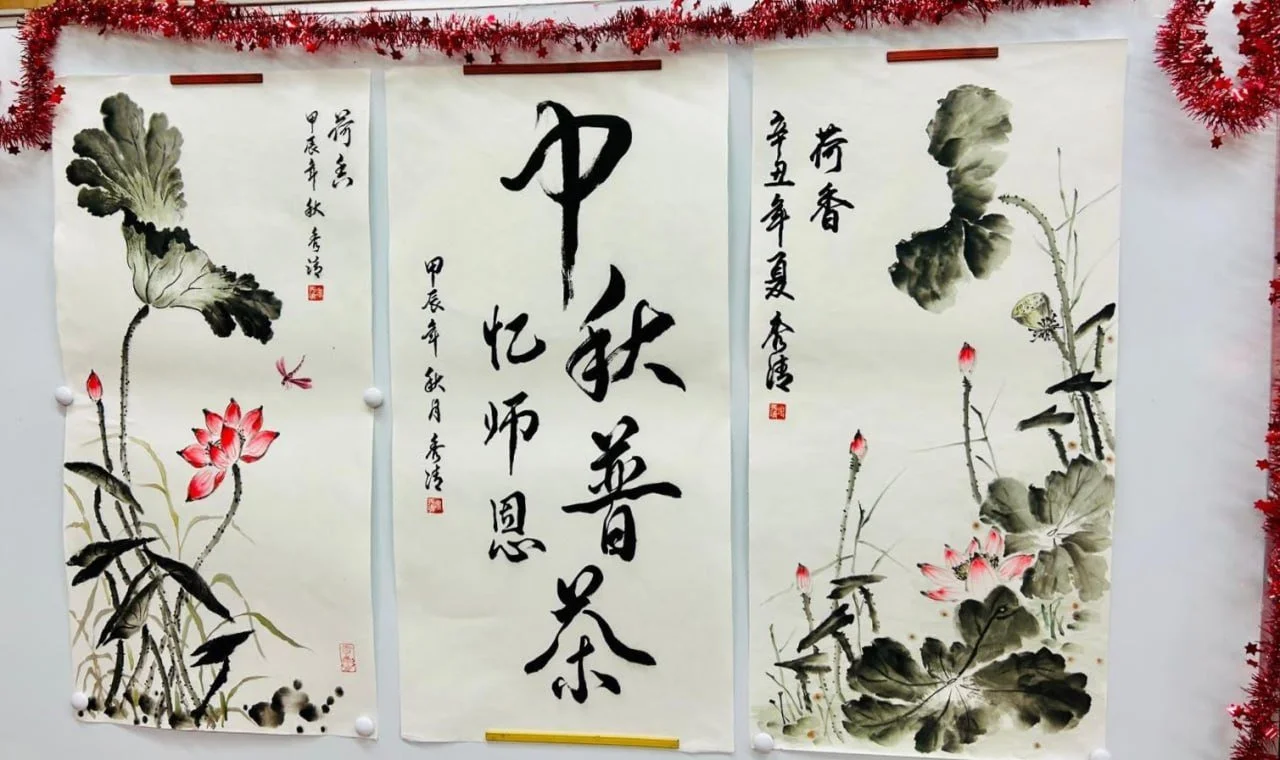 荷香
甲辰年秋秀清
中秋普茶
忆师恩
甲辰年秋月秀清
荷香
辛丑年夏秀清